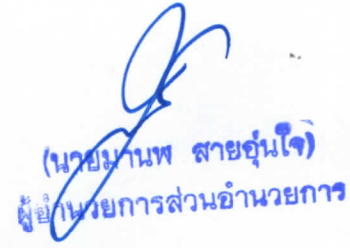 (นายมานพ สายอุ่นใจ)
ผู้อำนวยการส่วนอำนวยการ